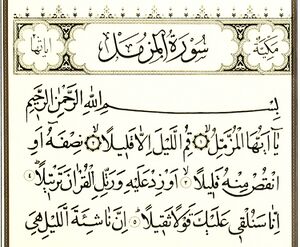 مكية سورة المزمل اياتها
بسم الله الرحمن الرحيم
يَا أَيُّهَا الْمُزَّمِّلُ ١ قُمِ اللَّيْلَ إِلَّا قَلِيلًا ٢ نِصْفَهُ أَوِ
انْقُصْ مِنْهُ قَلِيلًا ٣ أَوْ زِدْ عَلَيْهِ وَرَتِّلِ الْقُرْآنَ تَرْتِيلًا ٤
إِنَّا سَنُلْقِي عَلَيْكَ قَوْلًا ثَقِيلًا ٥ إِنَّ نَاشِئَةَ اللَّيْلِ هِيَ